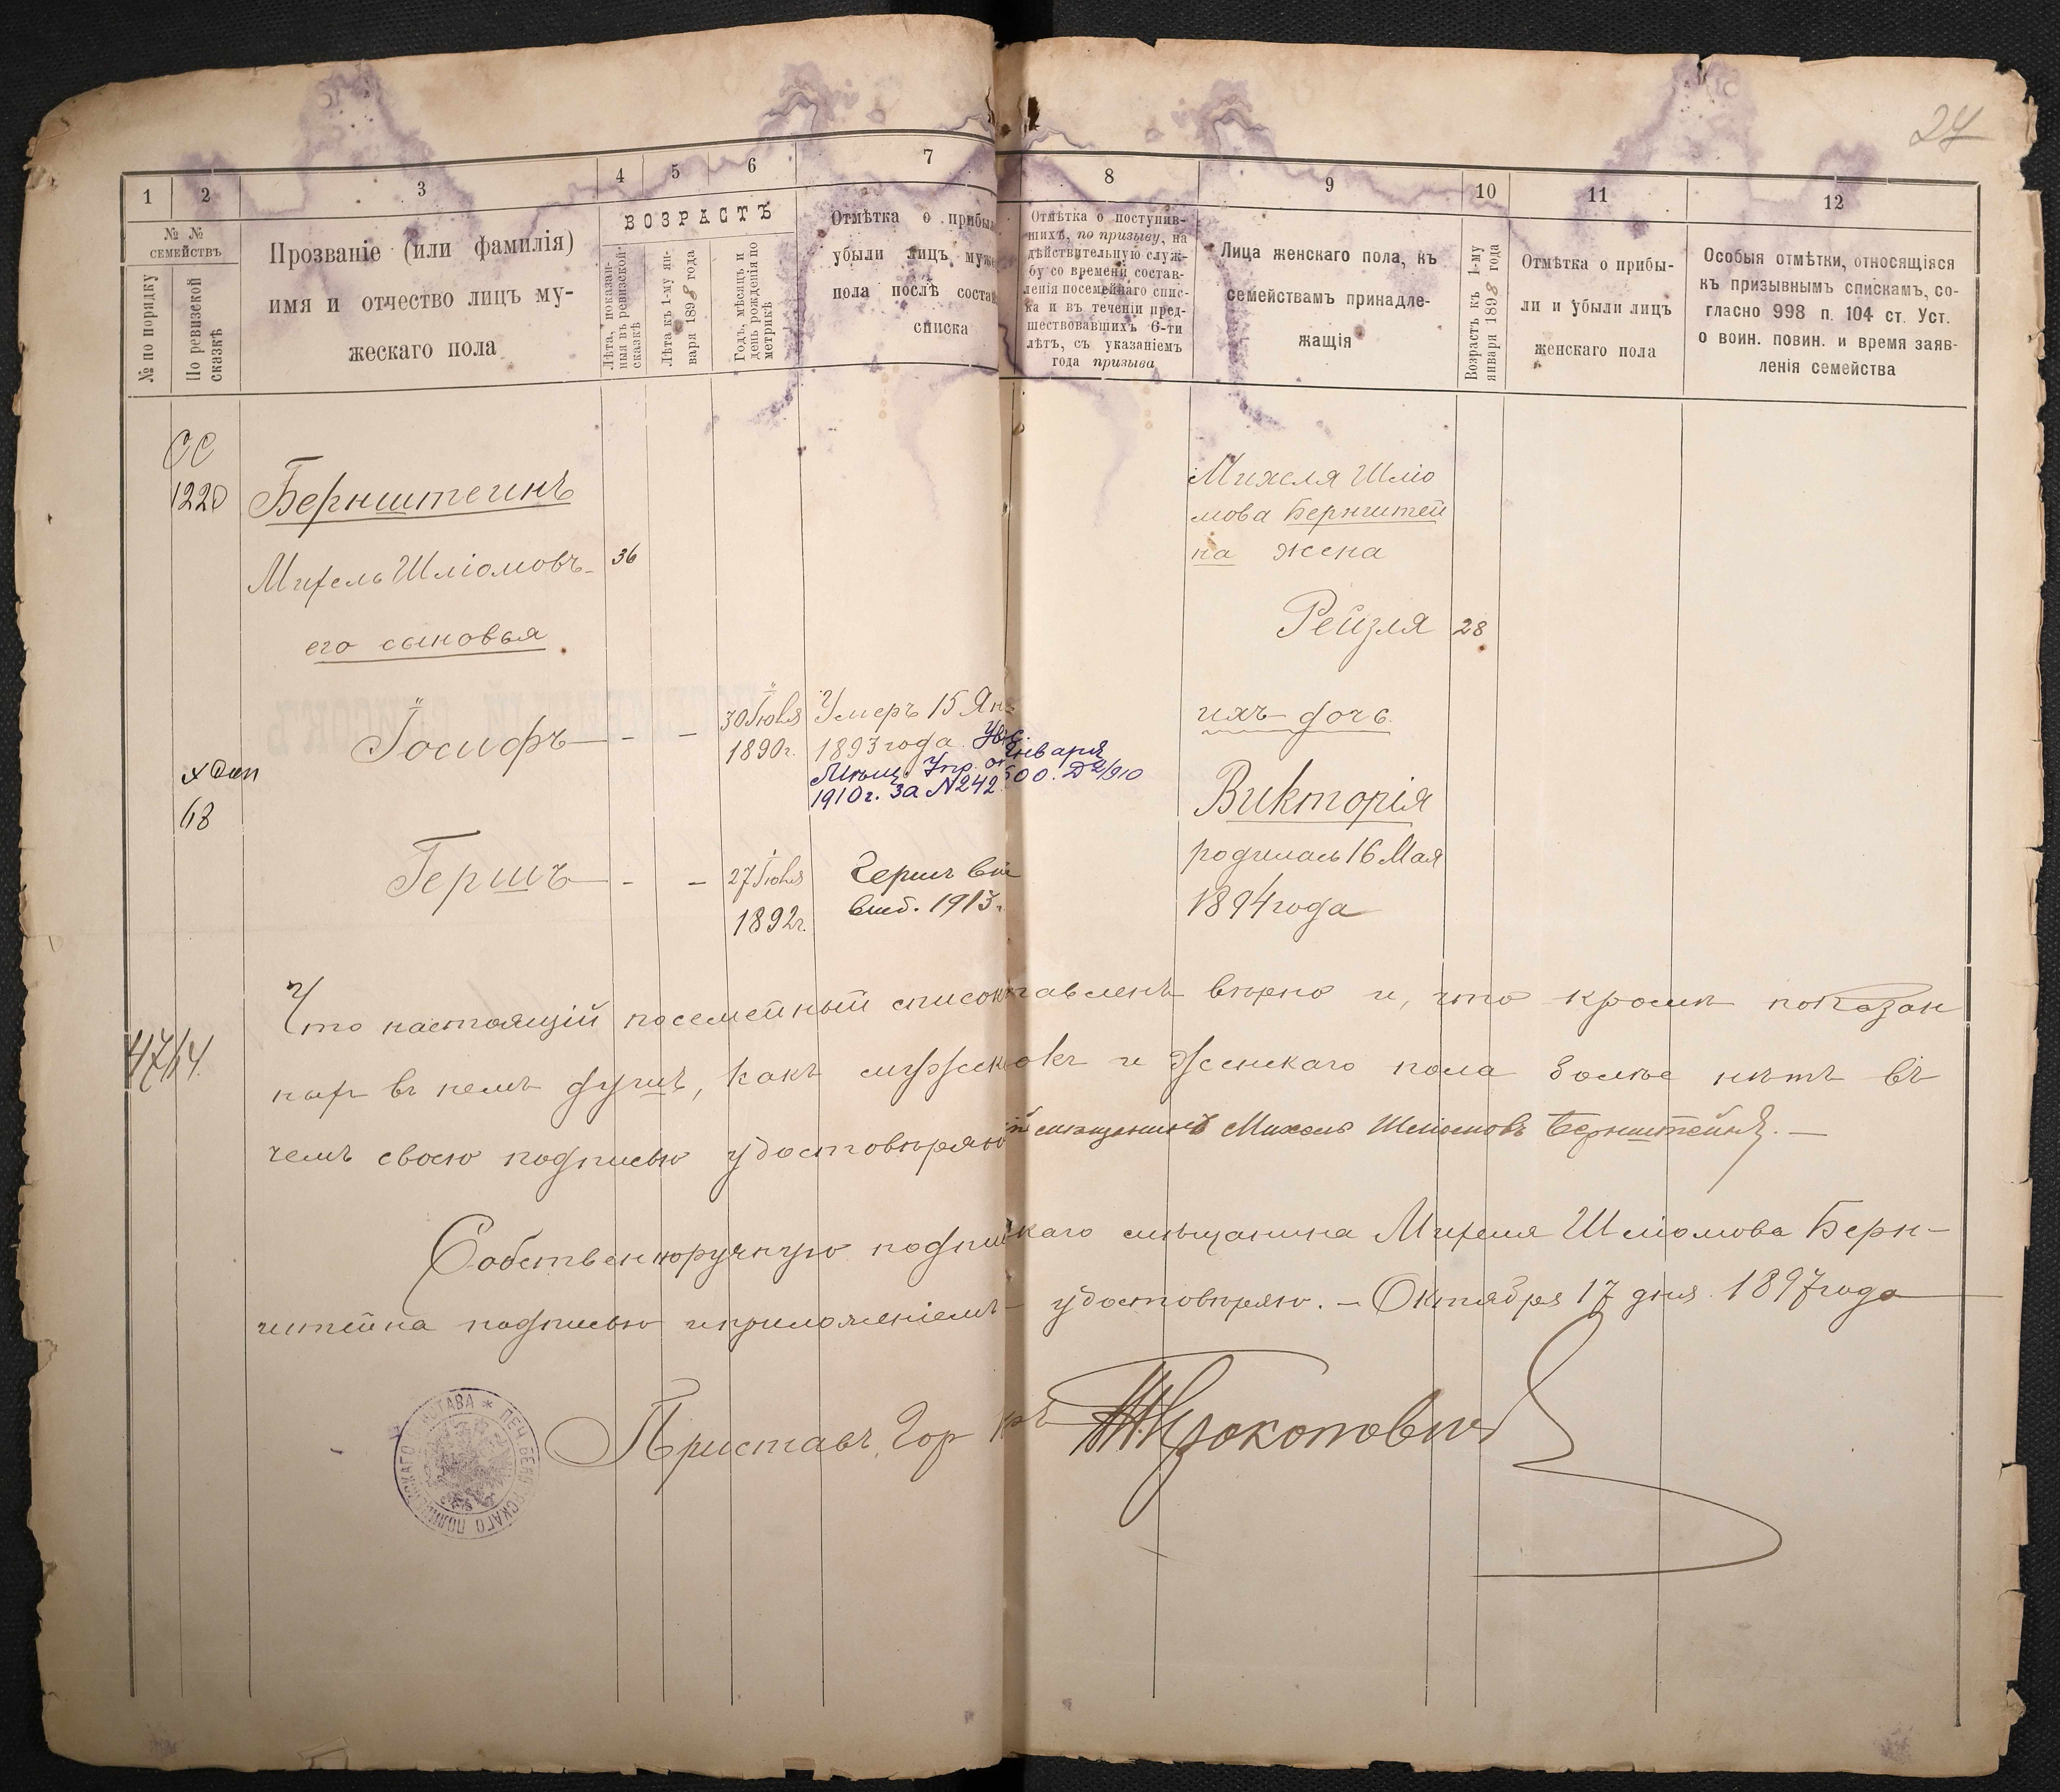 24
1 2 3 4 5 6 7 8 9 10 11 12
№ №
СЕМЕЙСТВЪ
№ по порядку
По ревизской
сказкѣ
Прозваніе (или фамилія)
имя и отчество лицъ му-
жескаго пола
ВОЗРАСТЪ
Лѣта, показан-
ныя въ ревизской
сказкѣ
Лѣта къ 1-му ян-
варя 1898 года
Годъ, мѣсяцъ и
день рожденія по
метрикѣ
Отмѣтка о прибы
убыли лицъ муже
пола послѣ состав
списка
Отмѣтка о поступив-
шихъ, по призыву, на
дѣйствительную служ-
бу со времени состав-
ленія посемейнаго спис-
ка и въ теченіи пред-
шествовавшихъ 6-ти
лѣтъ, съ указаніемъ
года призыва
Лица женскаго пола, къ
семействамъ принадле-
жащія
Возрастъ къ 1-му
января 1898 года
Отмѣтка о прибы-
ли и убыли лицъ
женскаго пола
Особыя отмѣтки, относящіяся
къ призывнымъ спискамъ, со-
гласно 998 п. 104 ст. Уст.
о воин. повин. и время заяв-
ленія семейства
СС
1220
Бернштеинъ
Михель Шліомовъ 36
его сыновья
Іосифъ - -
30 Іюля
1890г.
Умеръ 15 Ян
1893 года. Ув.
Мѣщ. Упр. от Января
1910г. за N242
68
Гершъ - -
27 Іюля
1892г.
Герш
1913г.
Михеля Шліо
мова Бернштей
на жена
Рейзля 28
ихъ дочь
Викторія
родилась 16 Мая
1894 года
47/14.
Что настоящій посемейный список тавленъ вѣрно и, что кромѣ показан
ныхъ въ немъ душъ, какъ мужск окъ и женскаго пола болѣе нѣтъ въ
чемъ своею подписью удостовѣряю мѣщанинъ Михель Шліомовъ Бернштейнъ. —
Собственноручную подпи каго мѣщанина Михеля Шліомова Берн-
штейна подписью и приложеніемъ удостовѣряю. — Октября 17 дня 1897 года
Приставъ Гор Прокоповичъ